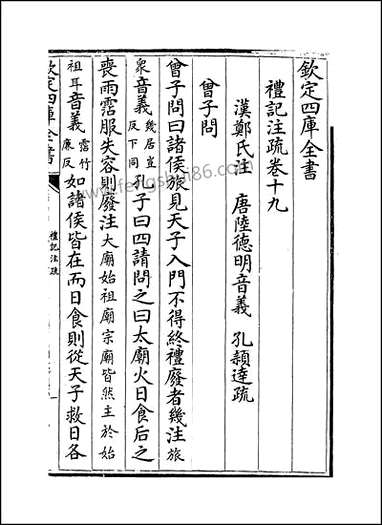 欽定四庫全書
禮記注疏卷十九
漢鄭氏注 唐陸德明音義 孔穎達疏
曾子問
曾子問曰諸侯旅見天子入門不得終禮廢者幾注旅
衆音義幾居豈反下同孔子曰四請問之曰太廟火日食后之
喪雨霑服失容則廢注大廟始祖廟宗廟皆然主於始
祖耳音義霑竹廉反如諸侯皆在而日食則從天子救日各
欽定四庫全書
禮記注疏
www.fengshui86.com